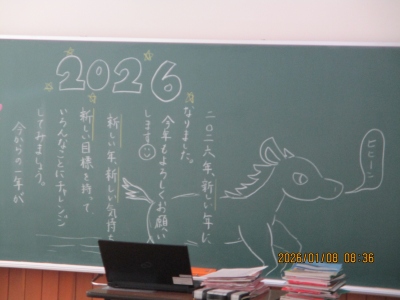 2026
二〇二六年、新しい年に
なりました。
今年もよろしくお願い
します
新しい年、新しい気持ち
新しい目標を持って
いろんなことにチャレンジ
してみましょう。
今からの一年が
ヒヒーン
2026/01/08 08:36